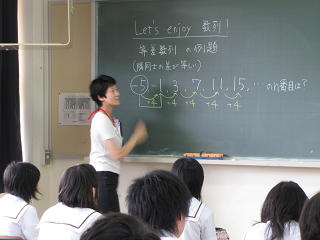 Let's enjoy 数列!
等差数列 の例題
(隣同士の差が等しい)
-5, -1, 3, 7, 11, 15, … のn番目は?
+4 +4 +4 +4 +4